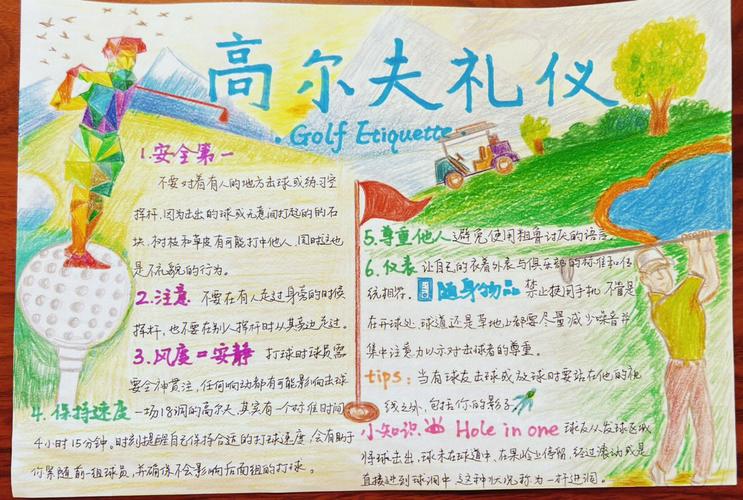 高尔夫礼仪
Golf Etiquette
1.安全第一
不要对着有人的地方击球或练习空
挥杆,因为击出的球或无意间打起的的石
块、树枝和草皮有可能打中他人,同时这也
是不礼貌的行为。
2.注意 不要在有人走过身旁的时候
挥杆,也不要在别人挥杆时从其旁边走过。
3.风度口安静 打球时球员需
要全神贯注,任何响动都有可能影响击球
4.保持速度 一场18洞的高尔夫,其实有一个对准时间
4小时15分钟。时刻提醒自己保持合适的打球速度,会有助于
你紧随前一组球员,并确保不会影响后面组的打球。
5.尊重他人 避免使用粗鲁讨厌的语言。
6.仪表 让自己的衣着外表与俱乐部的标准和传
统相符。 随身物品 禁止使用手机 不管是
在开球处 球道还是草地上都要尽量减少噪音并
集中注意力以示对击球者的尊重。
tips: 当有球友击球或放球时要站在他的视
线之外,包括你的影子
小知识 Hole in one 球友从发球区域
将球击出,球未在球道中、在果岭上停留,经过滚动或是
直接进到球洞中,这种状况称为一杆进洞。